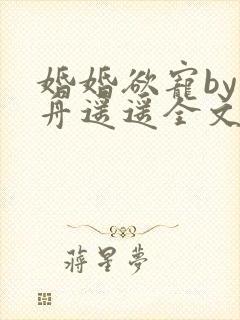 婚婚欲寵by
丹遥遥全文
蔣星夢